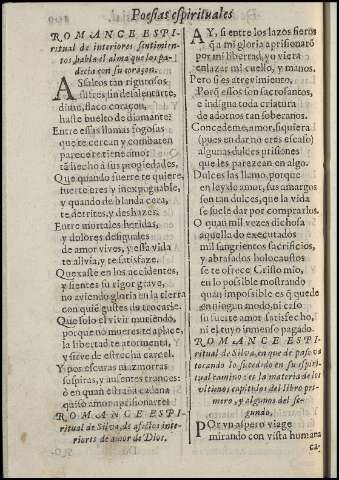 Poesias espirituales
ROMANCE ESPI-
ritual de interiores sentimien-
tos, habla el alma que los pa-
decia con su coraçon.
ASsaltos tan rigurosos
sufres, sin desalentarte,
dime, flaco coraçon,
haste buelto de diamante?
Entre essas llamas fogosas
que te cercan y combaten
parece te tiene amor
tã hecho à sus propiedades.
Que quando fuerte te quiere,
fuerte eres y inexpugnable,
y quando de blanda cera,
te derrites, y deshazes.
Entre mortales heridas,
y dolores desiguales
de amor vives, y essa vida
te alivia, y te satisfaze.
Quexaste en los accidentes,
y sientes su rigor grave,
no aviendo gloria en la tierra
con quiẽ gustes du trocarle.
Que solo el vivir muriendo,
porque no mueres te aplace,
la libertad te atormenta,
y sirve de estrecha carcel.
Y por escuras mazmorras
suspiras, y ausentes trances:
ò en quan estraña cadena
quiso amor aprisionarte!
ROMANCE ESPI-
ritual de Silva, de afectos inte-
riores de amor de Dios.
AY, si entre los lazos fieros
q̃ a mi gloria aprisionarõ
por mi libertad, yo viera
enlazar mi cuello, y manos.
Pero si es atrevimiento,
Porq̃ essos son sacrosantos,
e indigna toda criatura
de adornos tan soberanos.
Concedeme, amor, siquiera
(pues en darno eres escaso)
algunas dulces prisiones
que les parezcan en algo.
Dulces las llamo, porque
en ley de amar, sus amargos
son tan dulces, que la vida
se suele dar por comprarlos.
O quan mil vezes dichosa
aquella do executados
mil sangrientos sacrificios,
y abrasados holocaustos
se te ofrece Cristo mio,
en lo possible mostrando
quan impossible es q̃ quede
en ningun modo, ni caso
su fuerte amor satisfecho,
ni el tuyo inmenso pagado.
ROMANCE ESPI-
ritual de Silva, en que de passo va
tocando lo sucedido en su espiri-
tual camino: es la materia de los
ultimos capitulos del libro pri-
mero, y algunos del se-
gundo,
POr vn aspero viage
mirando con vista humana
ca-